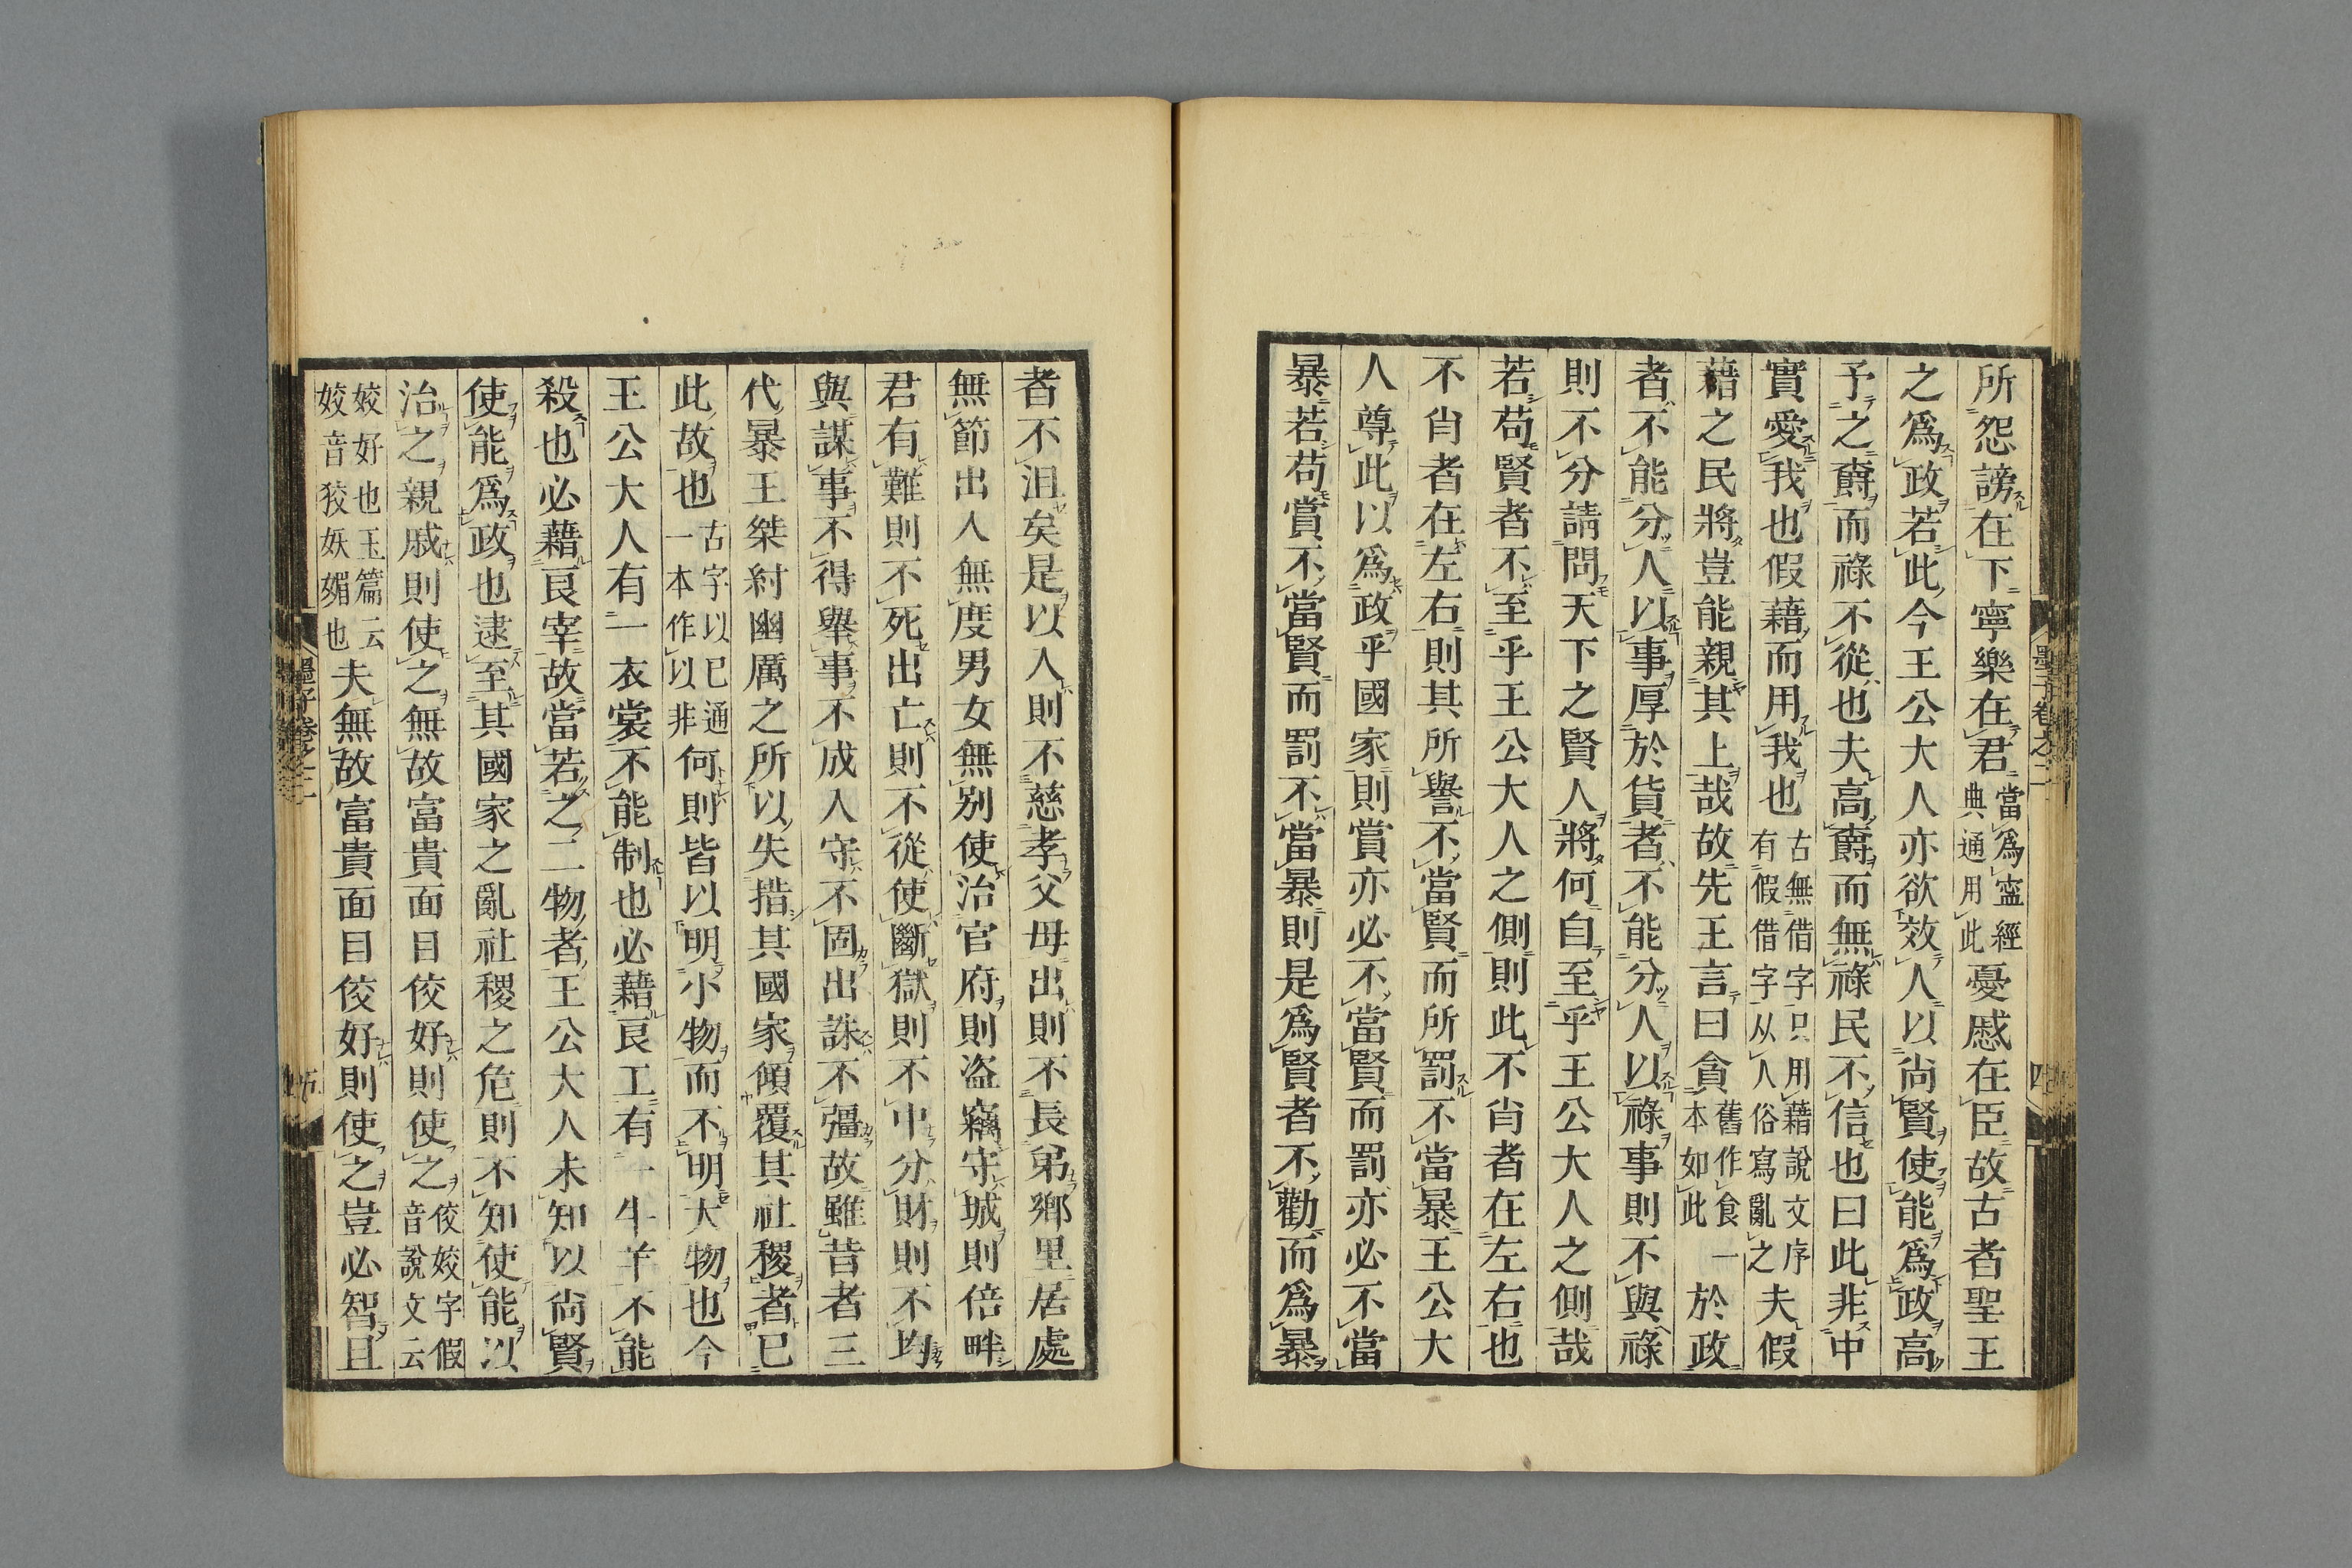 所怨謗在下寧樂在君當爲寍經典通用此憂慼在臣故古者聖王
之爲政若此今王公大人亦欲效人以尙賢使能爲政高
予之爵而祿不從也夫高爵而無祿民不信也曰此非中
實愛我也假藉而用我也古無借字只用藉說文序有假借字从人俗寫亂之夫假
藉之民將豈能親其上哉故先王言曰貪舊作食一本如此於政
者不能分人以事厚於貨者不能分人以祿事則不與祿
則不分請問天下之賢人將何自至乎王公大人之側哉
若苟賢者不至乎王公大人之側則此不肖者在左右也
不肖者在左右則其所譽不當賢而所罰不當暴王公大
人尊此以爲政乎國家則賞亦必不當賢而罰亦必不當
暴若苟賞不當賢而罰不當暴則是爲賢者不勸而爲暴
墨子卷之二
四
者不沮矣是以入則不慈孝父母出則不長弟鄉里居處
無節出入無度男女無別使治官府則盜竊守城則倍畔
君有難則不死出亡則不從使斷獄則不中分財則不均
與謀事不得舉事不成入守不固出誅不彊故雖昔者三
代暴王桀紂幽厲之所以失措其國家傾覆其社稷者已
此故也古字以已通一本作以非何則皆以明小物而不明大物也今
王公大人有一衣裳不能制也必藉良工有一牛羊不能
殺也必藉良宰故當若之二物者王公大人未知以尙賢
使能爲政也逮至其國家之亂社稷之危則不知使能以
治之親戚則使之無故富貴面目佼好則使之佼姣字假音說文云
姣好也玉篇云姣音狡妖媚也夫無故富貴面目佼好則使之豈必智且
墨子卷之二
五